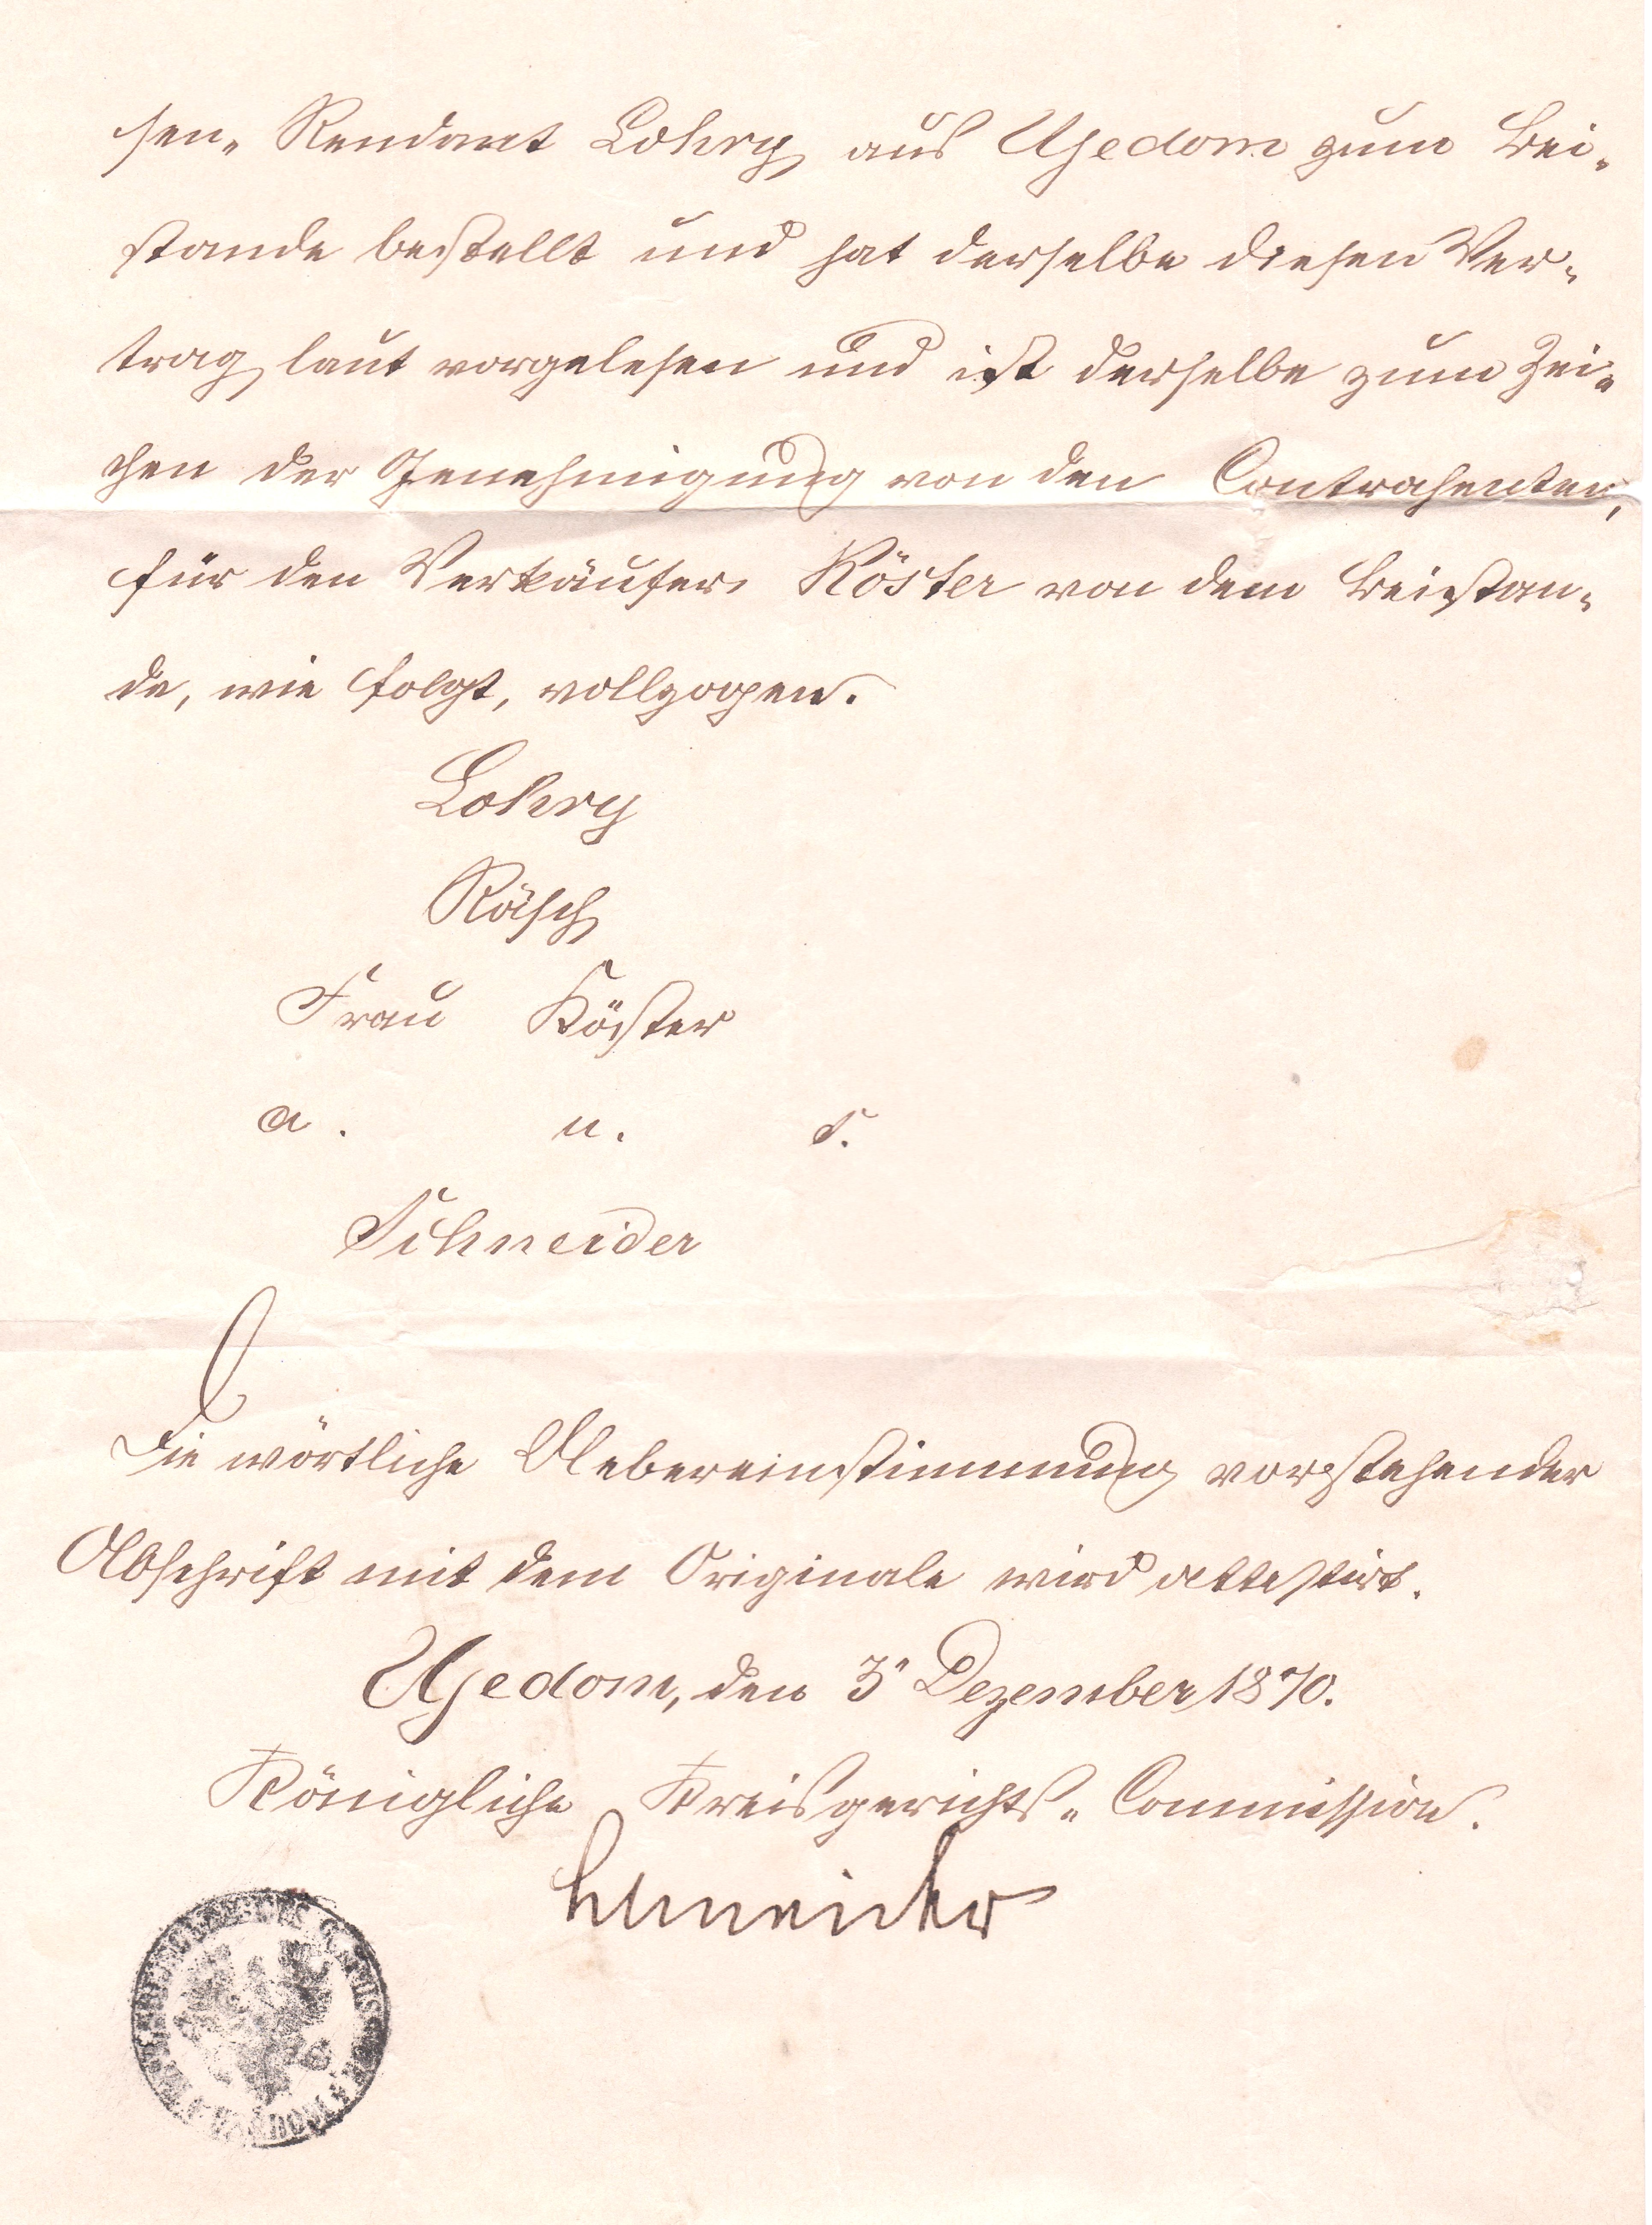 sen- Rendant Lohry aus Usedom zum Bei-
stande bestellt und hat derselbe diesen Ver-
trag laut vorgelesen und ist derselbe zum Zei-
chen der Genehmigung von den Contrahenten,
für den Verkäufer Köster von dem Beistan-
de, wie folgt, vollzogen.
Lohry
Räsch
Frau Köster
a. u. s.
Schneider
Die wörtliche Uebereinstimmung vorstehender
Abschrift mit dem Originale wird attestirt.
Usedom, den 3' Dezember 1870.
Königliche Kreisgerichts- Commission.
Schneider